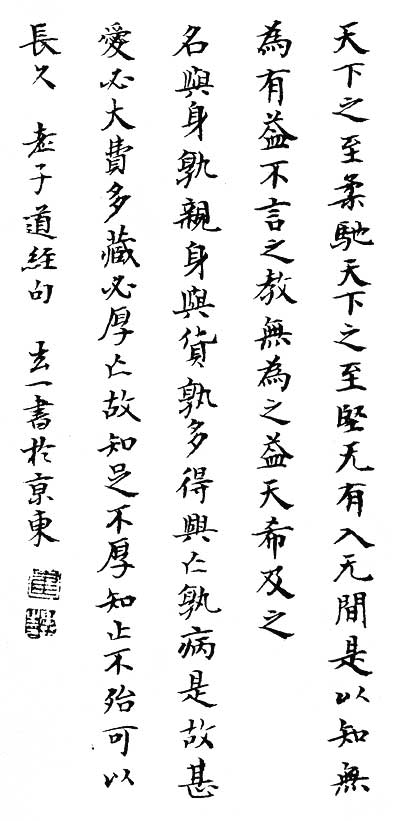 天下之至柔馳天下之至堅无有入无間是以知無
為有益不言之教無為之益天希及之
名與身孰親身與貨孰多得與亡孰病是故甚
愛必大費多藏必厚亡故知足不厚知止不殆可以
長久 老子道經句 玄一書於京東